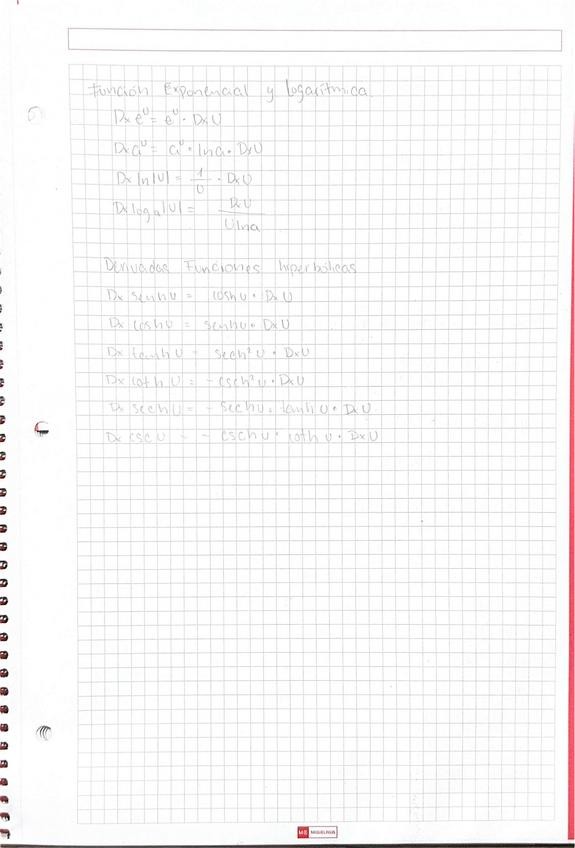 Función Exponencial y Logarítmica.
Dx e^U = e^U · DxU
Dx a^U = a^U · lna · DxU
Dx ln|U| = 1/U · DxU
Dx log_a|U| = DxU / U lna
Derivadas Funciones hiperbólicas
Dx senh U = cosh U · DxU
Dx cosh U = senh U · DxU
Dx tanh U = sech² U · DxU
Dx coth U = - csch² U · DxU
Dx sech U = - sech U · tanh U · DxU
Dx csc U = - csch U · coth U · DxU
MB MIQUELRIUS